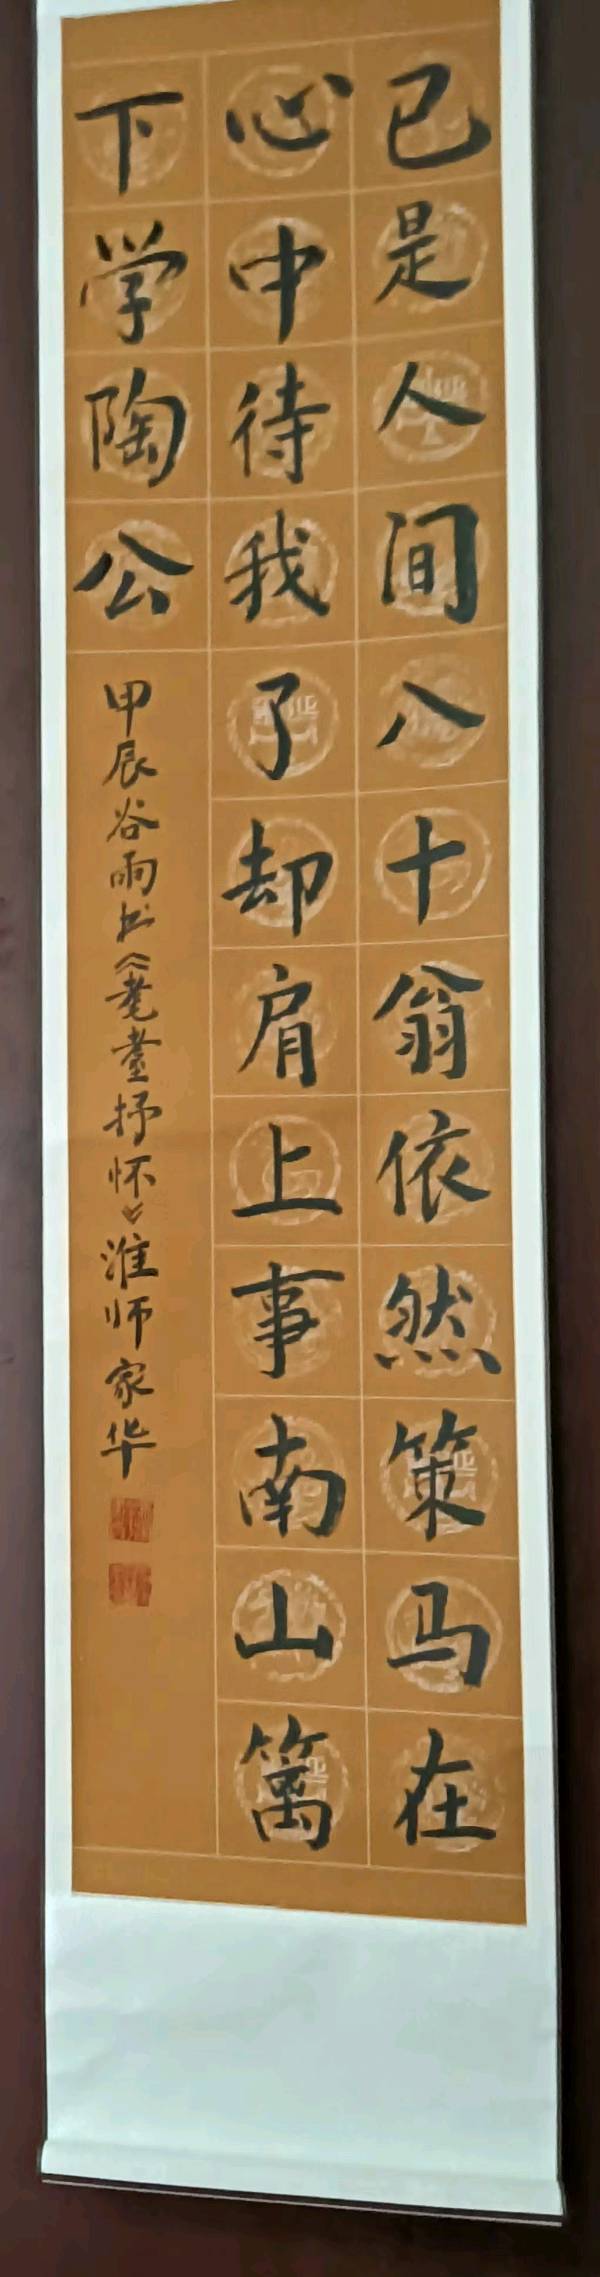 已是人间八十翁依然策马在
心中待我了却肩上事南山篱
下学陶公
甲辰谷雨书《耄耋抒怀》淮师家华